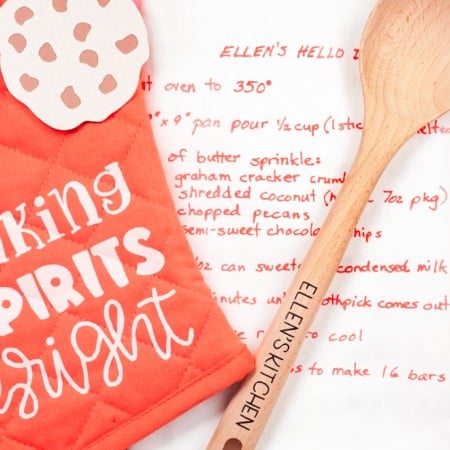 ELLEN'S HELLO
oven to 350°
9" pan pour ½ cup (1 stick
of butter sprinkle:
graham cracker
shredded coconut 7oz pkg)
chopped pecans
semi-sweet chocolate chips
can condensed milk
minutes until toothpick comes out
to cool
to make 16 bars
king
SPIRITS
bright
ELLEN'S KITCHEN